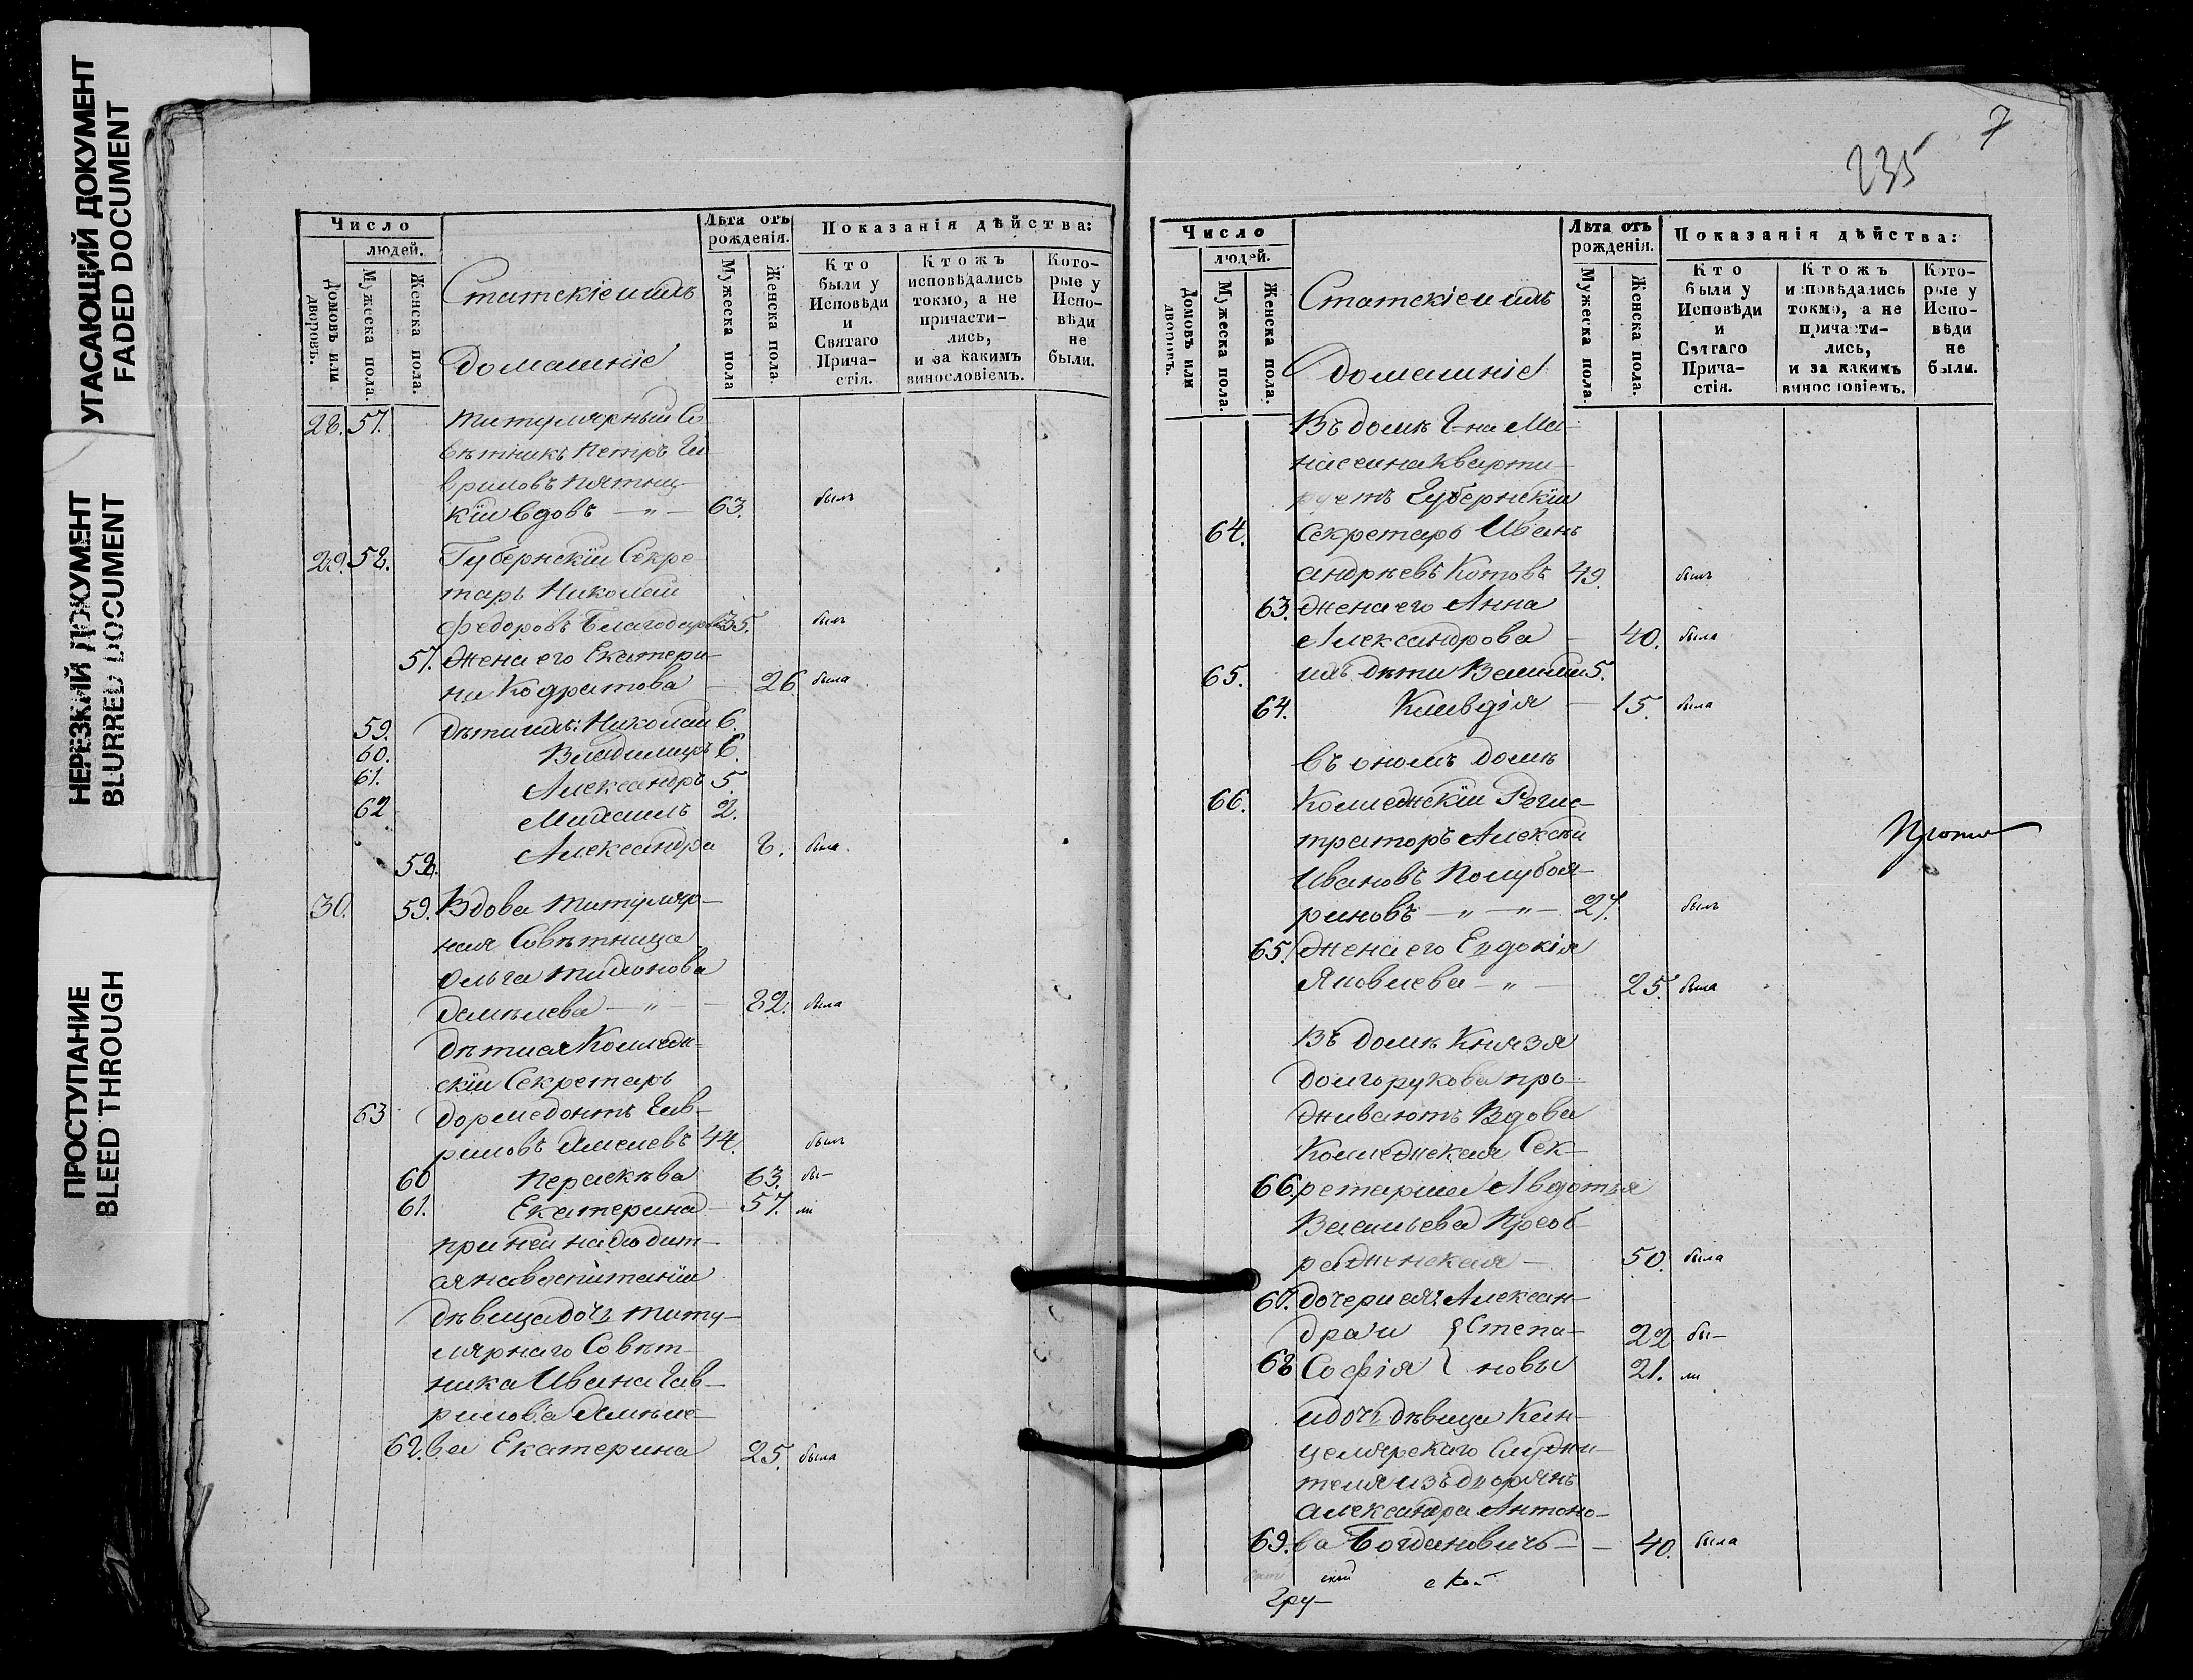 УГАСАЮЩИЙ ДОКУМЕНТ
FADED DOCUMENT
НЕРЕЗКИЙ ДОКУМЕНТ
BLURRED DOCUMENT
ПРОСТУПАНИЕ
BLEED THROUGH
Число
людей.
Домовъ или дворовъ.
Мужеска пола.
Женска пола.
Статскіе и ихъ
домашніе
Лѣта отъ рожденія.
Мужеска пола
Женска пола.
Показанія дѣйства:
Кто были у Исповѣди и Святаго Прича-стія.
Ктожъ исповѣдались токмо, а не причасти-лись, и за какимъ винословіемъ.
Кото-рые у Испо-вѣди не были.
28. 57. Титулярный Со
вѣтникъ Петръ Га
вриловъ Пятниц-
кій вдовъ — " — 63. былъ
29. 58. Губернскій Секре
тарь Николай
Федоровъ 35. былъ
57. Жена его Екатери-
на Кодратова — 26 была
59. Дѣти ихъ: Николай 6.
60. Владимиръ 6.
61. Александръ 5.
62 Михаилъ 2.
58. Александра 8. была.
30. 59. Вдова Титуляр-
ная Совѣтница
Ольга Тихонова
— " — 82. была
Дѣти ея Коллеж-
скій Секретарь
63 Дормедонтъ Гав-
риловъ 44. былъ
60 Параскева 63. бы-
61. Екатерина — 57. ли
при ней находит-
ся на воспитаніи
дѣвица дочь титу-
лярнаго Совѣт-
ника Ивана Гав-
рилова
62. ва Екатерина 25. была
7
235
Число
людей.
Домовъ или дворовъ.
Мужеска пола.
Женска пола.
Статскіе и ихъ
домашніе
Лѣта отъ рожденія.
Мужеска пола.
Женска пола.
Показанія дѣйства:
Кто были у Исповѣди и Святаго Прича-стія.
Ктожъ исповѣдались токмо, а не причасти-лись, и за какимъ винословіемъ.
Кото-рые у Испо-вѣди не были.
Въ домѣ Г-на Ма-
насеина кварти-
руетъ Губернскій
64. Секретарь Иванъ
Андреевъ Котовъ 49. былъ
63. Жена его Анна
Александрова — 40. была
65. ихъ дѣти Василій 5.
64. Клавдія — 15. была
въ ономъ домѣ
66. Коллежскій Регис-
траторъ Алексѣй
Ивановъ Полубоя-
риновъ — " — " — 27. былъ
65. Жена его Евдокія
Яковлева — " — 25. была
Въ домѣ Князя
Долгорукова про-
живаютъ Вдова
Коллежская Сек-
66. ретарша Авдотья
Васильева Преоб-
раженская — 50. была
67. дочери ея: Алексан-
дра и } Степа- 22 бы-
68 Софія } новы 21. ли
и дочь дѣвица Кан-
целярскаго Служи-
теля изъ дворянъ
Александра Антоно-
69. ва Богдановичъ — — 40. была
ской
Гру-